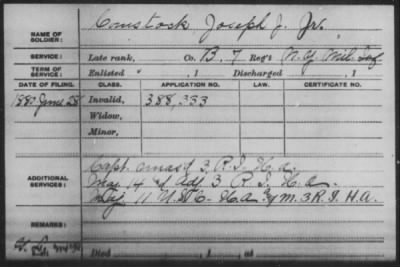 NAME OF SOLDIER: Comstock Joseph J. Jr.
SERVICE: Late rank, Co. B. 7 Reg't N.Y. Mil. Inf.
TERM OF SERVICE: Enlisted , 1 Discharged , 1
DATE OF FILING. CLASS. APPLICATION NO. LAW. CERTIFICATE NO.
1880 June 28 Invalid, 388,333
Widow,
Minor,
ADDITIONAL SERVICES: Capt. 3 R.I. H.A.
Maj. 14 & Adj. 3 R.I. H.A.
Maj. 11 U.S.C. H.A. & Q.M. 3 R.I. H.A.
REMARKS:
Died , 1 at